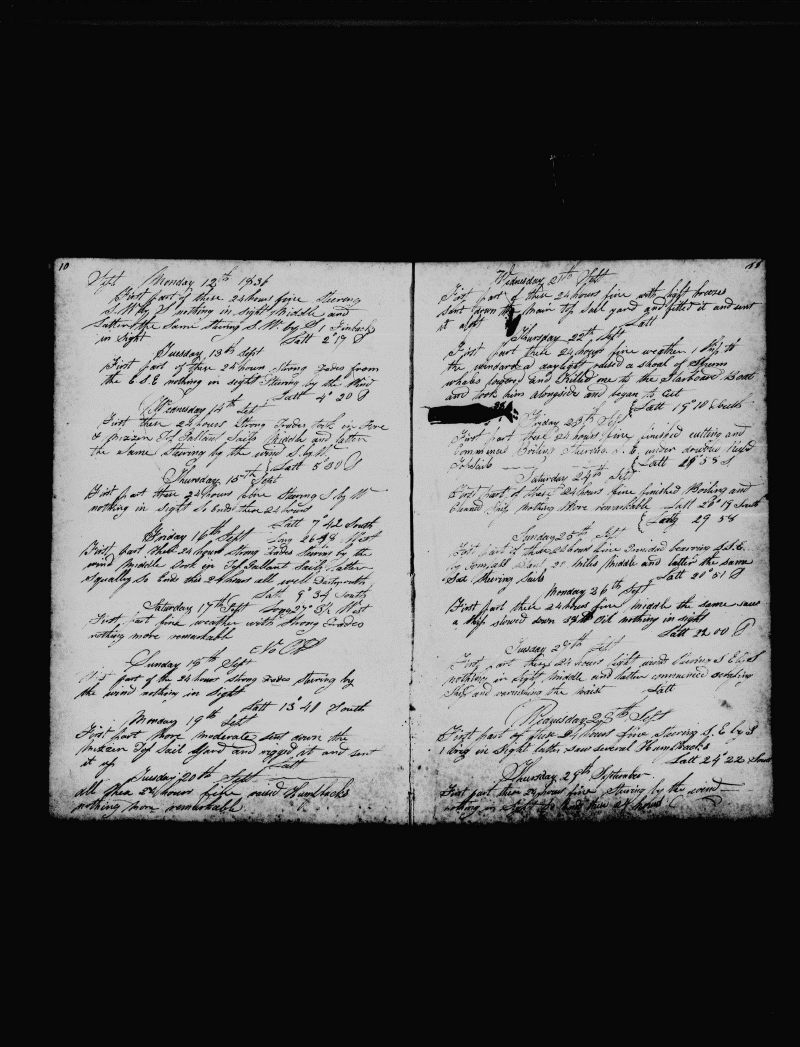 10
Sept Monday 12th 1836
First part of these 24 hours fine Steering
S.W. by S nothing in sight Middle and
Latter the Same Stering S.W. by S 1 Finback
in sight Latt 2°19 S
Tuesday 13th Sept
First part of these 24 hours Strong Trades from
the E.S.E nothing in sight Stering by the Wind
Latt 4° 20 S
Wednesday 14th Sept
First these 24 hours Strong Trades took in Fore
& Mizzen Top Gallant Sails Middle and latter
the same Steering by the wind S. by W.
Latt 5°30 S
Thursday 15th Sept
First part these 24 hours fine Stering S by W
nothing in sight So Ends these 24 hours
Latt 7 42 South
Friday 16th Sept Long 26 48 West
First part these 24 hours strong Trades stering by the
wind Middle took in Top Gallant Sails Latter
squally So Ends the 24 hours all well
Latt 9° 34 South
Saturday 17th Sept Long 27° West
First part fine weather with Strong Trades
nothing more remarkable
No
Sunday 18th Sept
First part of the 24 hours strong Trades stering by
the wind nothing in sight
Latt 13° 40 South
Monday 19th Sept
First part More moderate sent down the
Mizzen Top Sail Yard and rigged it and sent
it up Latt
Tuesday 20th Sept
all these 24 hours fine raised Humpbacks
nothing more remarkable
Wednesday 21st Sept
First part of these 24 hours fine with light breezes
sent down the Main Top Sail yard and fitted it and sent
it aloft Latt
Thursday 22th Sept
First part these 24 hours fine weather 1 Ship to
the windard at daylight raised a shoal of Sperm
whales lowered and Killed one to the Starboard Boat
and took him alongside and began to Cut
Latt 19° 18 South
Friday 23th Sept
First part these 24 hours fine finished cutting and
commenced Boiling Steering S. E. under double Reefd
TopSails Latt 19° 58 S
Saturday 24th Sept
First part of these 24 hours fine finished Boiling and
Cleaned Ship nothing More remarkable Latt 20° 19 South
Long 29 58
Sunday 25th Sept
First part of these 24 hours fine Trinidad bearing S.S.E.
by Compass Dist 20 miles Middle and latter the same
Sat Stering Sails Latt 21° 51 S
Monday 26th Sept
First part these 24 hours fine Middle the same saw
a Ship stowed down Oil nothing in sight
Latt 22 00 S
Tuesday 27th Sept
First part these 24 hours light winds Steering S E by S
nothing in sight Middle and latter commenced scraping
Ship and varnishing the waist Latt
Wednesday 28th Sept
First part of these 24 hours fine Steering S. E by S
1 brig in Sight latter saw several Humpbacks
Latt 24° 22 South
Thursday 29th September
First part these 24 hours fine Steering by the wind
nothing in sight So Ends these 24 hours